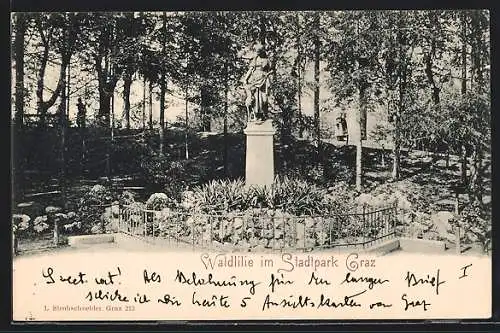 Waldlilie im Stadtpark Graz
Sweet cat! Als Belohnung für den langen Brief I
schicke ich dir heute 5 Ansichtskarten von Graz
L. Strohschneider, Graz 213